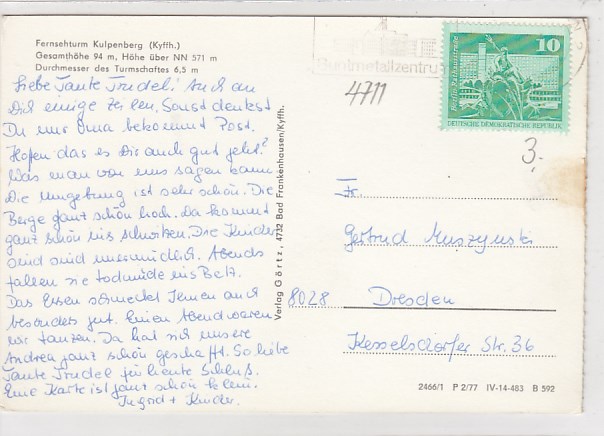 Fernsehturm Kulpenberg (Kyffh.)
Gesamthöhe 94 m, Höhe über NN 571 m
Durchmesser des Turmschaftes 6,5 m
Liebe Tante Trudel! Auch an
Dich einige Zeilen. Sonst denkst
Du nur Oma bekommt Post.
Hoffen das es Dir auch gut geht?
Was man von uns sagen kann.
Die Umgebung ist sehr schön. Die
Berge ganz schön hoch. Da kommt
ganz schön ins schwitzen. Die Kinder
sind sind unermüdlich. Abends
fallen sie todmüde ins Bett.
Das Essen schmeckt Jemen auch
besonders gut. Einen Abend waren
wir tanzen. Da hat sich unsere
Andrea ganz schön geschafft. So liebe
Tante Trudel für heute Schluß.
Eine Karte ist ganz schön klein.
Ingrid + Kinder.
Verlag Görtz, 4732 Bad Frankenhausen/Kyffh.
Buntmetallzentrum
4711
10
DEUTSCHE DEMOKRATISCHE REPUBLIK
3.-
Fr.
Gertrud Muszynski
8028 Dresden
Kesselsdorfer Str. 36
2466/1 P 2/77 IV-14-483 B 592